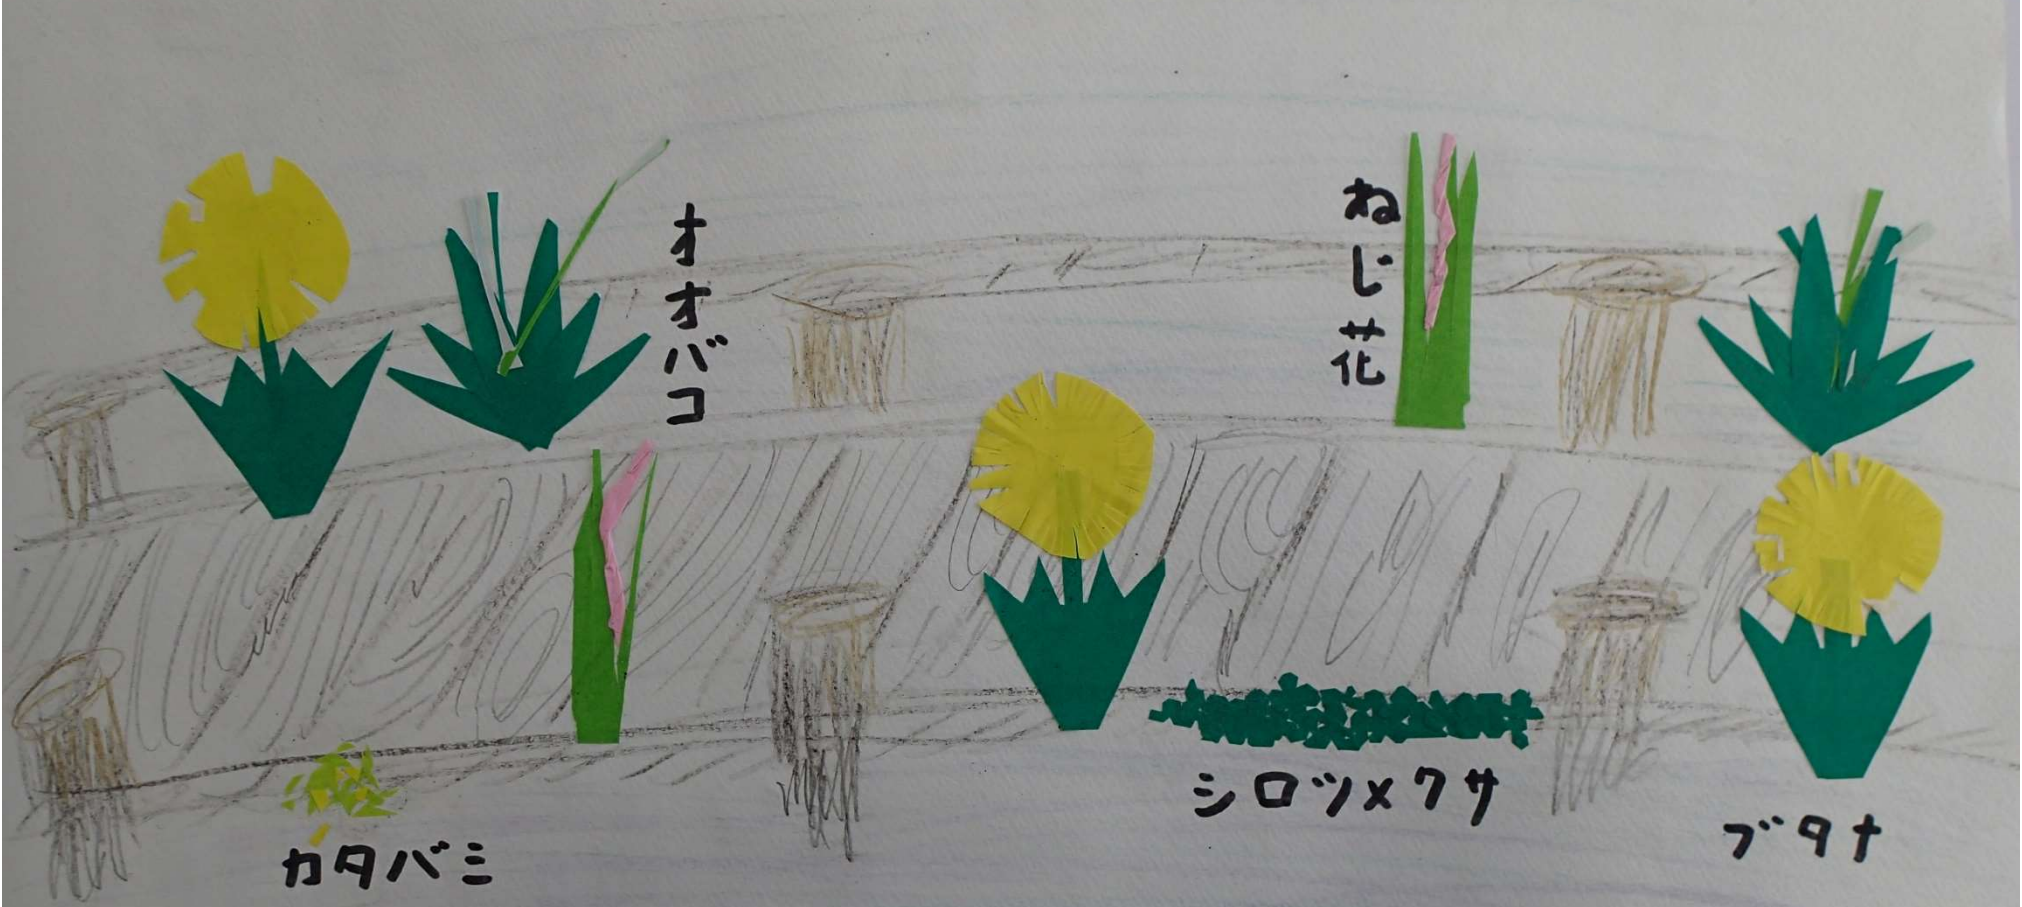 オオバコ
ねじ花
カタバミ
シロツメクサ
ブタナ